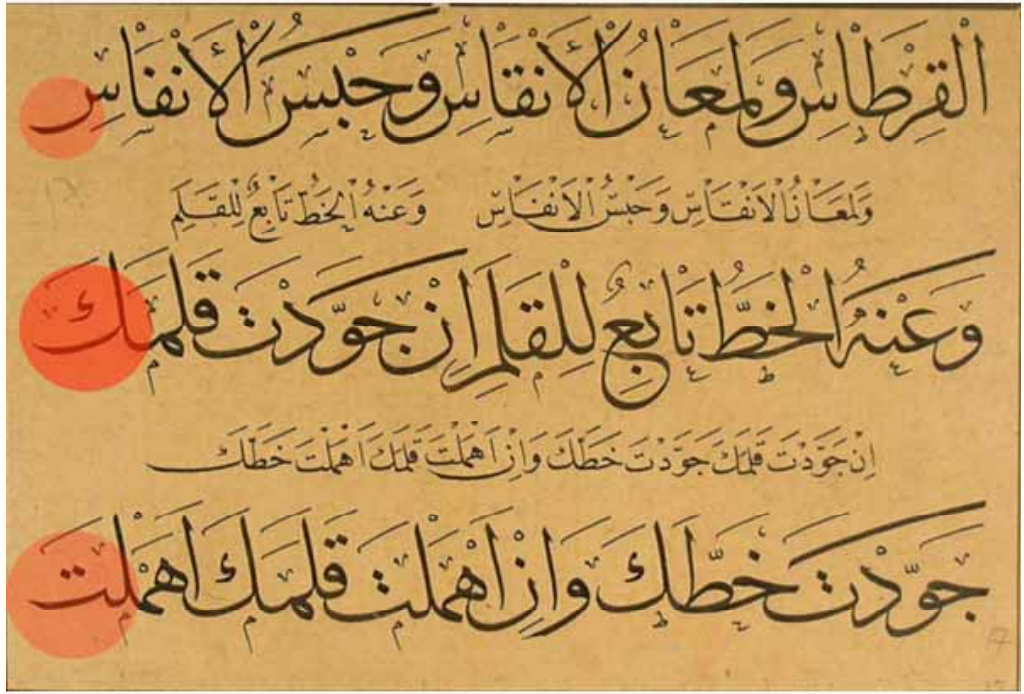 الْقِرْطَاسِ وَلَمَعَانُ الْأَنْقَاسِ وَحَبْسُ الْأَنْفَاسِ
وَلَمَعَانُ الْاَنْقَاسِ وَحَبْسُ الْاَنْفَاسِ وَعَنْهُ الْخَطُّ تَابِعٌ لِلْقَلَمِ
وَعَنْهُ الْخَطُّ تَابِعٌ لِلْقَلَمِ اِنْ جَوَّدْتَ قَلَمَكَ
اِنْ جَوَّدْتَ قَلَمَكَ جَوَّدْتَ خَطَّكَ وَاِنْ اَهْمَلْتَ قَلَمَكَ اَهْمَلْتَ خَطَّكَ
جَوَّدْتَ خَطَّكَ وَاِنْ اَهْمَلْتَ قَلَمَكَ اَهْمَلْتَ